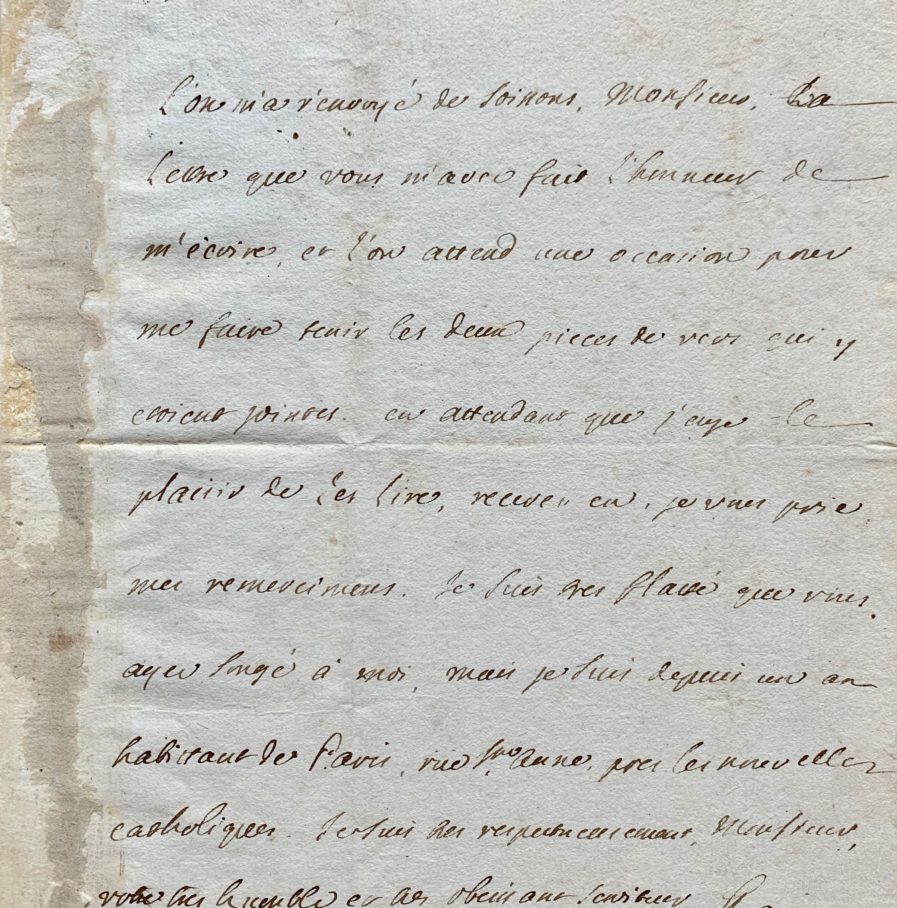 L'on m'a r'envoyé de Soissons, Monsieur, La
Lettre que vous m'avez fait l'honneur de
m'écrire, et l'on attend une occasion pour
me faire tenir les deux pieces de vers qui y
etoient jointes. en attendant que j'aye le
plaisir de Les Lire, recevez en, je vous prie,
mes remercimens. Je suis tres flatté que vous
ayez songé à moi, mais je suis depuis un an
habitant de Paris, rue Ste Anne, pres les nouvelles
catholiques. Je suis tres respectueusement, Monsieur,
votre tres humble et tres obeissant serviteur